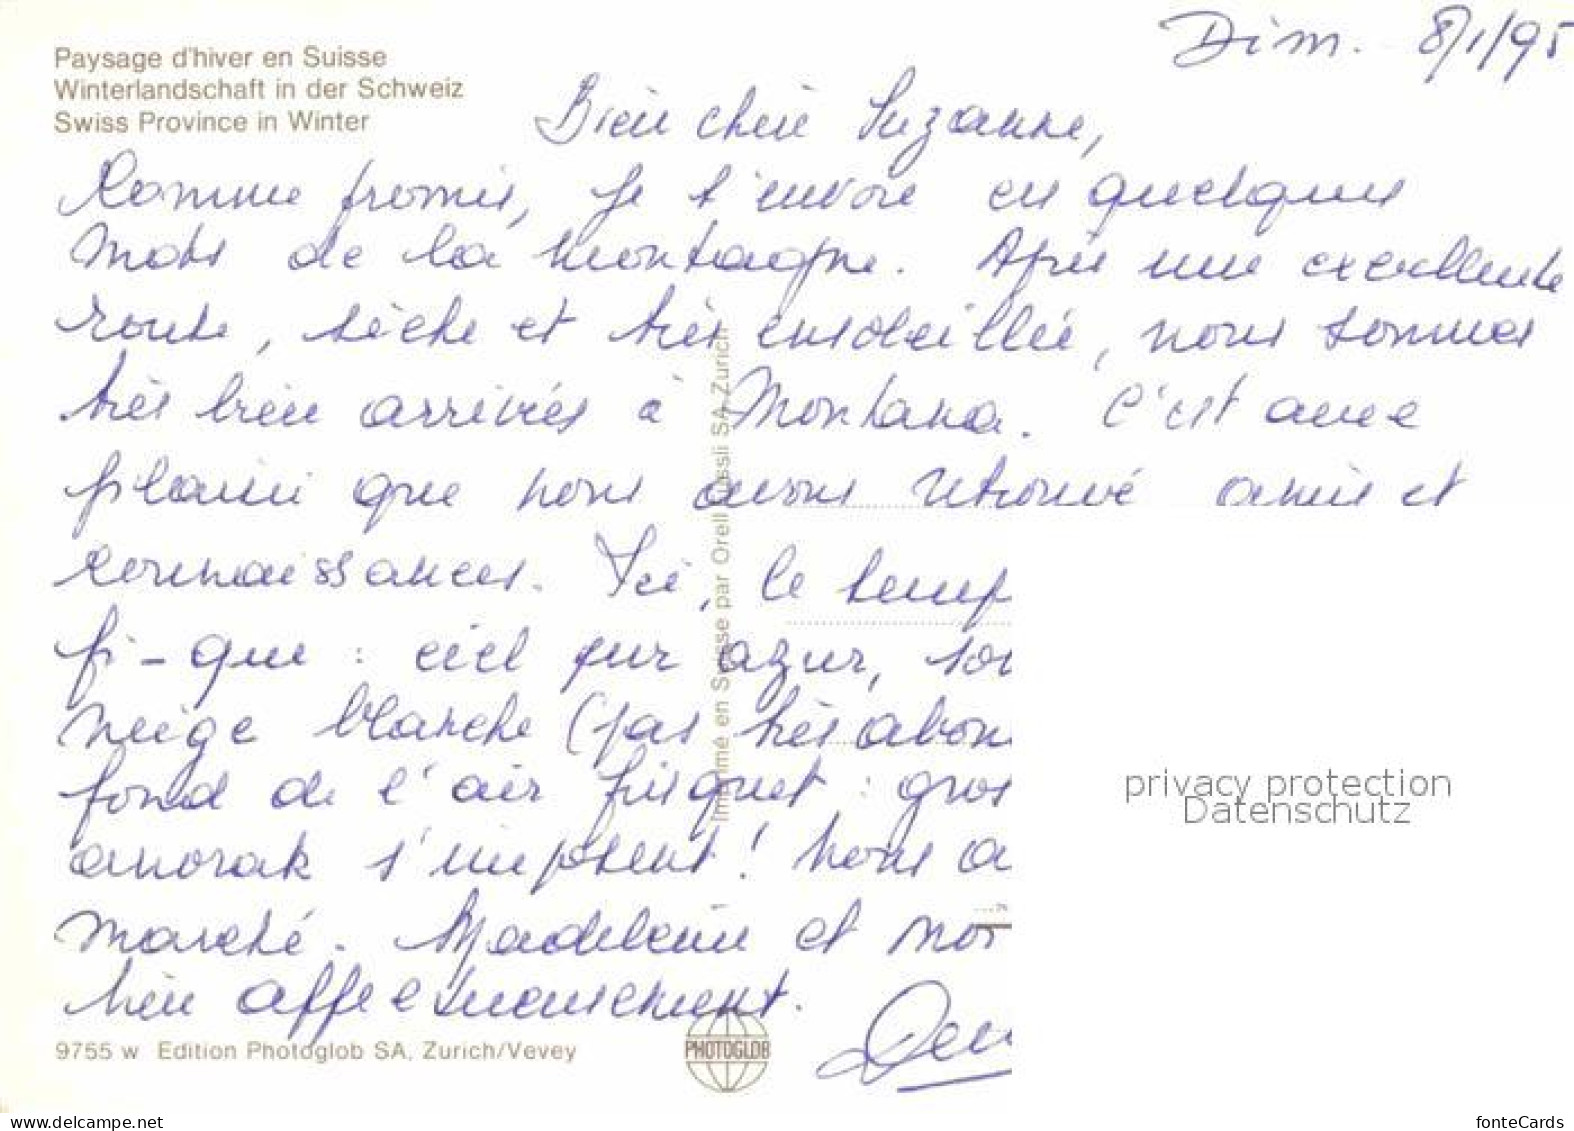 Dim. 8/1/95
Paysage d'hiver en Suisse
Winterlandschaft in der Schweiz
Swiss Province in Winter
Bien chère Suzanne,
Comme promis, je t'envoie ces quelques
mots de la montagne. Après une excellente
route, sèche et très ensoleillée, nous sommes
très bien arrivés à Montana. C'est avec
plaisir que nous avons retrouvé amis et
connaissances. Ici, le temp
fi-que : ciel pur azur,
neige blanche (pas très abon
fond de l'air frisquet : gros
anorak s'imposent! Nous a
marché. Madeleine et moi
bien affectueusement.
Imprimé en Suisse par Orell Füssli SA Zurich
9755 w Edition Photoglob SA, Zurich/Vevey
PHOTOGLOB
privacy protection
Datenschutz
www.delcampe.net
fonteCards